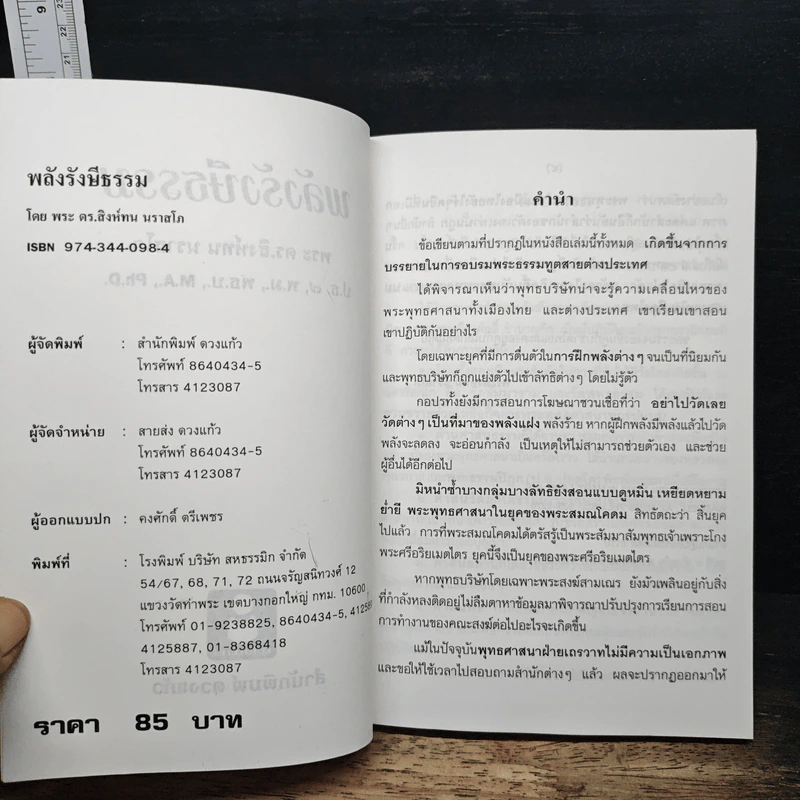 9
23
22
21
พลังรังษีธรรม
โดย พระ ดร.สิงห์ทน นราสโภ
ISBN 974-344-098-4
ผู้จัดพิมพ์ : สำนักพิมพ์ ดวงแก้ว
โทรศัพท์ 8640434-5
โทรสาร 4123087
ผู้จัดจำหน่าย : สายส่ง ดวงแก้ว
โทรศัพท์ 8640434-5
โทรสาร 4123087
ผู้ออกแบบปก : คงศักดิ์ ตรีเพชร
พิมพ์ที่ : โรงพิมพ์ บริษัท สหธรรมิก จำกัด
54/67, 68, 71, 72 ถนนจรัญสนิทวงศ์ 12
แขวงวัดท่าพระ เขตบางกอกใหญ่ กทม. 10600
โทรศัพท์ 01-9238825, 8640434-5, 412580
4125887, 01-8368418
โทรสาร 4123087
ราคา 85 บาท
คำนำ
ข้อเขียนตามที่ปรากฏในหนังสือเล่มนี้ทั้งหมด เกิดขึ้นจากการ
บรรยายในการอบรมพระธรรมทูตสายต่างประเทศ
ได้พิจารณาเห็นว่าพุทธบริษัทน่าจะรู้ความเคลื่อนไหวของ
พระพุทธศาสนาทั้งเมืองไทย และต่างประเทศ เขาเรียนเขาสอน
เขาปฏิบัติกันอย่างไร
โดยเฉพาะยุคที่มีการตื่นตัวในการฝึกพลังต่างๆ จนเป็นที่นิยมกัน
และพุทธบริษัทก็ถูกแย่งตัวไปเข้าลัทธิต่างๆ โดยไม่รู้ตัว
กอปรทั้งยังมีการสอนการโฆษณาชวนเชื่อที่ว่า อย่าไปวัดเลย
วัดต่างๆ เป็นที่มาของพลังแฝง พลังร้าย หากผู้ฝึกพลังมีพลังแล้วไปวัด
พลังจะลดลง จะอ่อนกำลัง เป็นเหตุให้ไม่สามารถช่วยตัวเอง และช่วย
ผู้อื่นได้อีกต่อไป
มิหนำซ้ำบางกลุ่มบางลัทธิยังสอนแบบดูหมิ่น เหยียดหยาม
ย่ำยี พระพุทธศาสนาในยุคของพระสมณโคดม สิทธัตถะว่า สิ้นยุค
ไปแล้ว การที่พระสมณโคดมได้ตรัสรู้เป็นพระสัมมาสัมพุทธเจ้าเพราะโกง
พระศรีอริยเมตไตร ยุคนี้จึงเป็นยุคของพระศรีอริยเมตไตร
หากพุทธบริษัทโดยเฉพาะพระสงฆ์สามเณร ยังมัวเพลินอยู่กับสิ่ง
ที่กำลังหลงติดอยู่ไม่ลืมตาหาข้อมูลมาพิจารณาปรับปรุงการเรียนการสอน
การทำงานของคณะสงฆ์ต่อไปอะไรจะเกิดขึ้น
แม้ในปัจจุบันพุทธศาสนาฝ่ายเถรวาทไม่มีความเป็นเอกภาพ
และขอให้ใช้เวลาไปสอบถามสำนักต่างๆ แล้ว ผลจะปรากฏออกมาให้